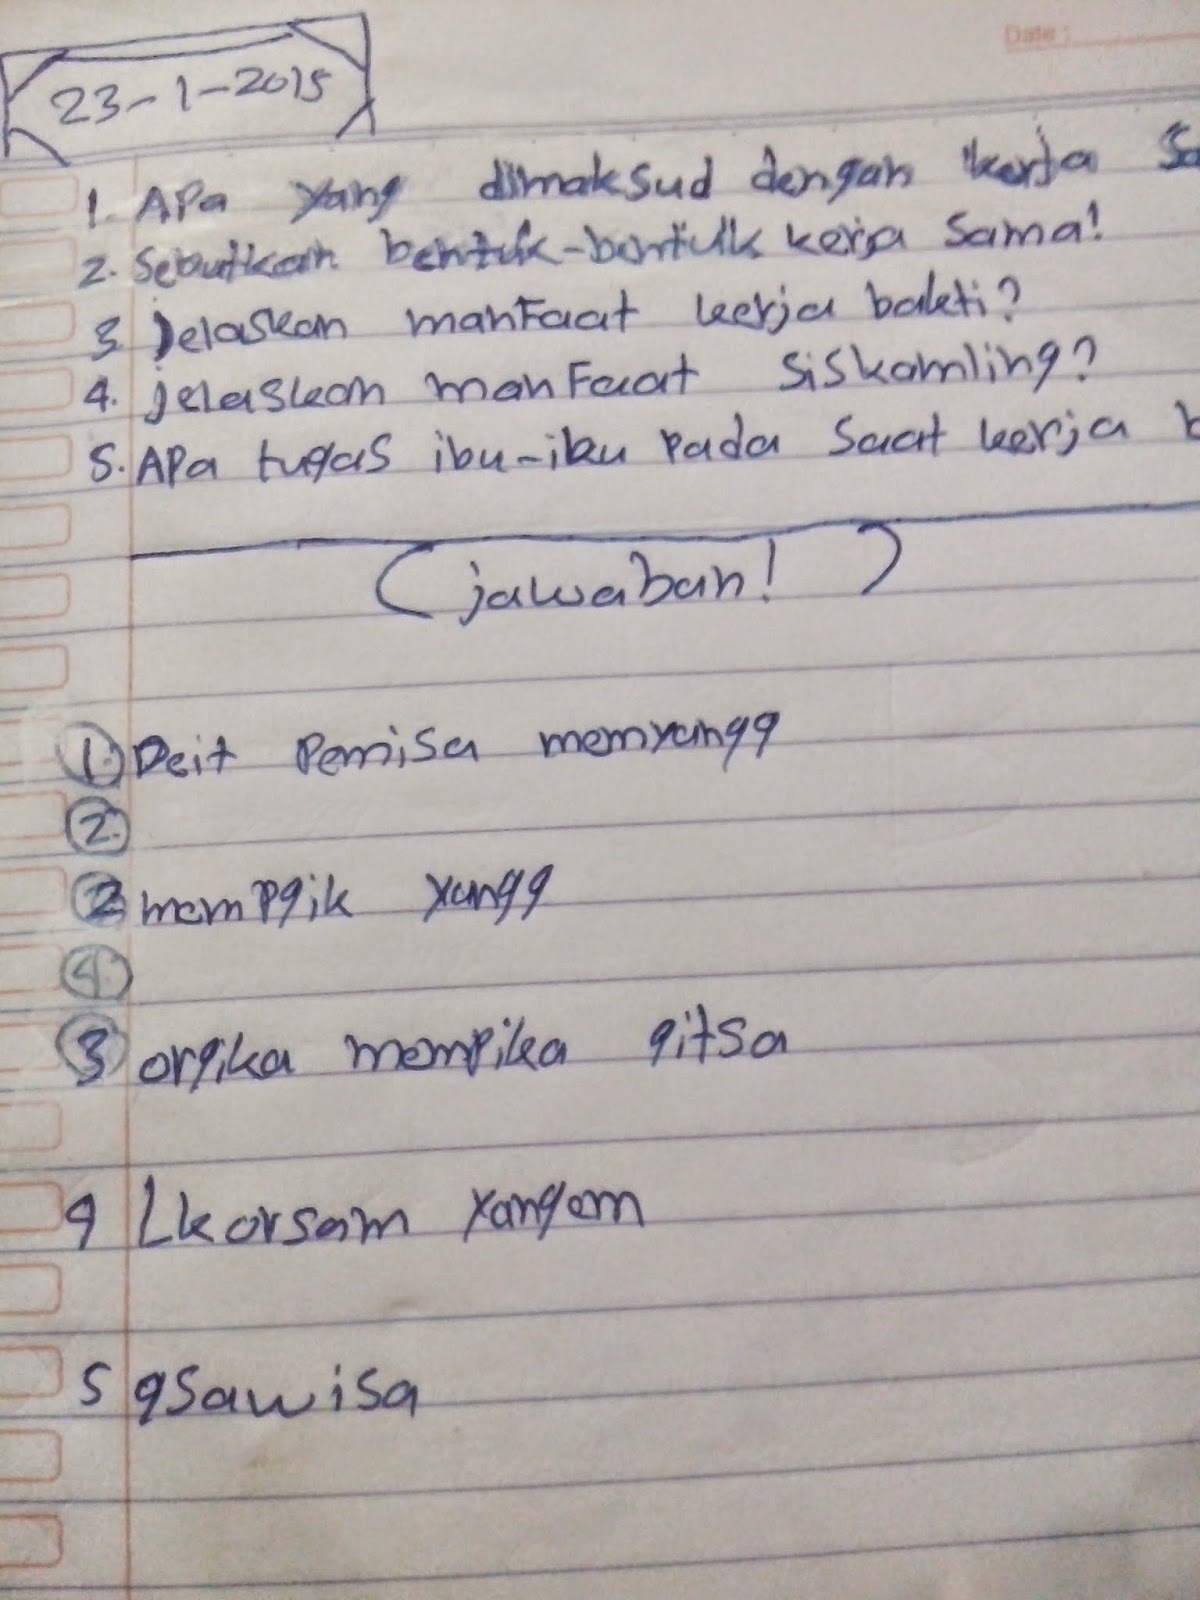 Date :
23-1-2015
1. APa yang dimaksud dengan kerja Sa
2. Sebutkan bentuk-bentulk kerja Sama!
3. Jelaskan manFaat kerja bakti?
4. jelaskan manFaat Siskamling?
5. APa tugas ibu-iku Pada Saat kerja b
(jawaban!)
1. Deit Pemisa memyangg
2.
2. memPqik yangg
4.
3 orqika mempika qitsa
4 Lkorsam yangem
5 qsawisa